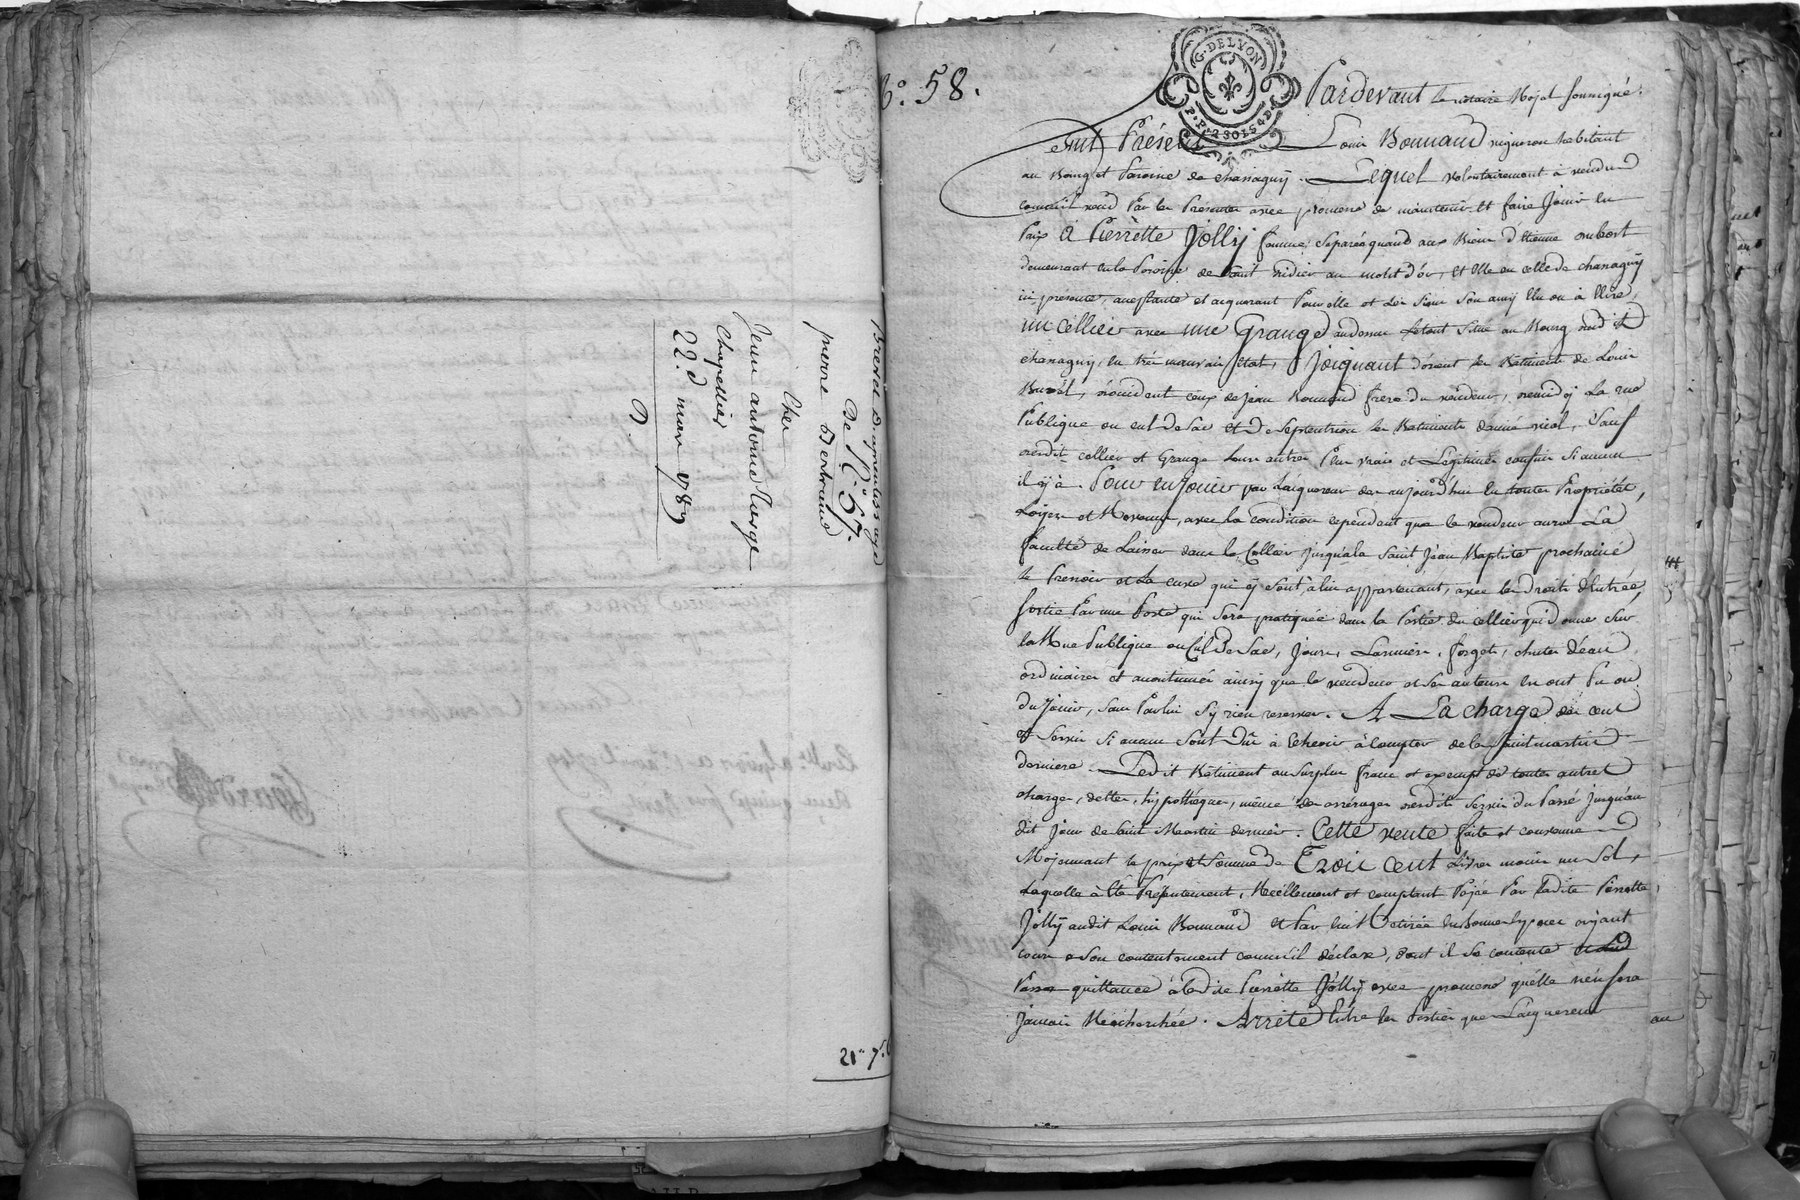 Brevet d'aprentissage
de Pre 67.
pierre Bertrand
Chez
Jean antoine Farge
Chapellier
22.d mars 1789
21tt 7s 6
No. 58.
G. DE LYON
Pardevant le notaire Royal soussigné.
Fut Présent Louis Bonnaud vigneron habitant
au Bourg et Paroisse de chassagny. Lequel volontairement à vendu
comme il vend Par les Présentes avec promesse de maintenir et faire Jouir en
Paix A Pierrette Jolly femme Separée quand aux Biens d'Etienne
demeurant en la Paroisse de Saint Didier au mont d'or, et Elle en celle de chassagny
ici présente, acceptante et acquerant Pour elle et les Siens Son amy Elu ou à Elire,
un cellier avec une Grange audessus le tout Situé au Bourg dudit
chassagny, en très mauvais Etat, Joignant d'orient les Bâtiments de Louis
Burel, d'occident ceux de Jean Bonnaud frere du vendeur, de midy La rue
Publique ou cul de Sac et De Septentrion les Batiments dainé vial, Sauf
desdits cellier et Grange Leurs autres Plus vrais et Légitimes confins Si aucuns
il y à. Pour en Jouir par L'acquereur dès aujourd'huy En toutes Propriétés,
Loyers et Revenus, avec la condition cependent que le vendeur aura La
faculté de Laisser dans le Cellier Jusqu'à la Saint Jean Baptiste prochaine
le Pressoir et La cuve qui y sont à lui appartenant, avec les Droits d'Entrée,
Sortie Par une Porte qui Sera pratiquée dans la Partie du cellier qui donne Sur
la Rue Publique ou Cul De Sac, Jours, Larmiers, forgets, chutes d'eau
ordinaires et accoutumés ainsy que le vendeur et Ses auteurs En ont Pu ou
Du Jouir, Sans Par lui S'y rien reserver. A La charge des cens
et Servis Si aucuns Sont Dûs à L'echoir à Compter de la Saint martin
derniere. Ledit Bâtiment au Surplus franc et exempt de toutes autres
charges, dettes, hypothéques, même des arrérages desdits Servis du Passé Jusqu'au
dit Jour de Saint Martin dernier. Cette vente faite et convenue
Moyennant le prix et Somme de Trois cent Livres moins un Sol,
Laquelle à été Présentement, Réellement et comptant Payée Par Ladite Pierrette
Jolly audit Louis Bonnaud et Par lui Retirée En Bonnes Especes ayant
cours à Son contentement comme il déclare, dont il Se contente et En
Passe quittance à ladite Pierrette Jolly avec promesse qu'elle n'en Sera
Jamais Recherchée. Arrêté Entre les Parties que L'acquereur
au